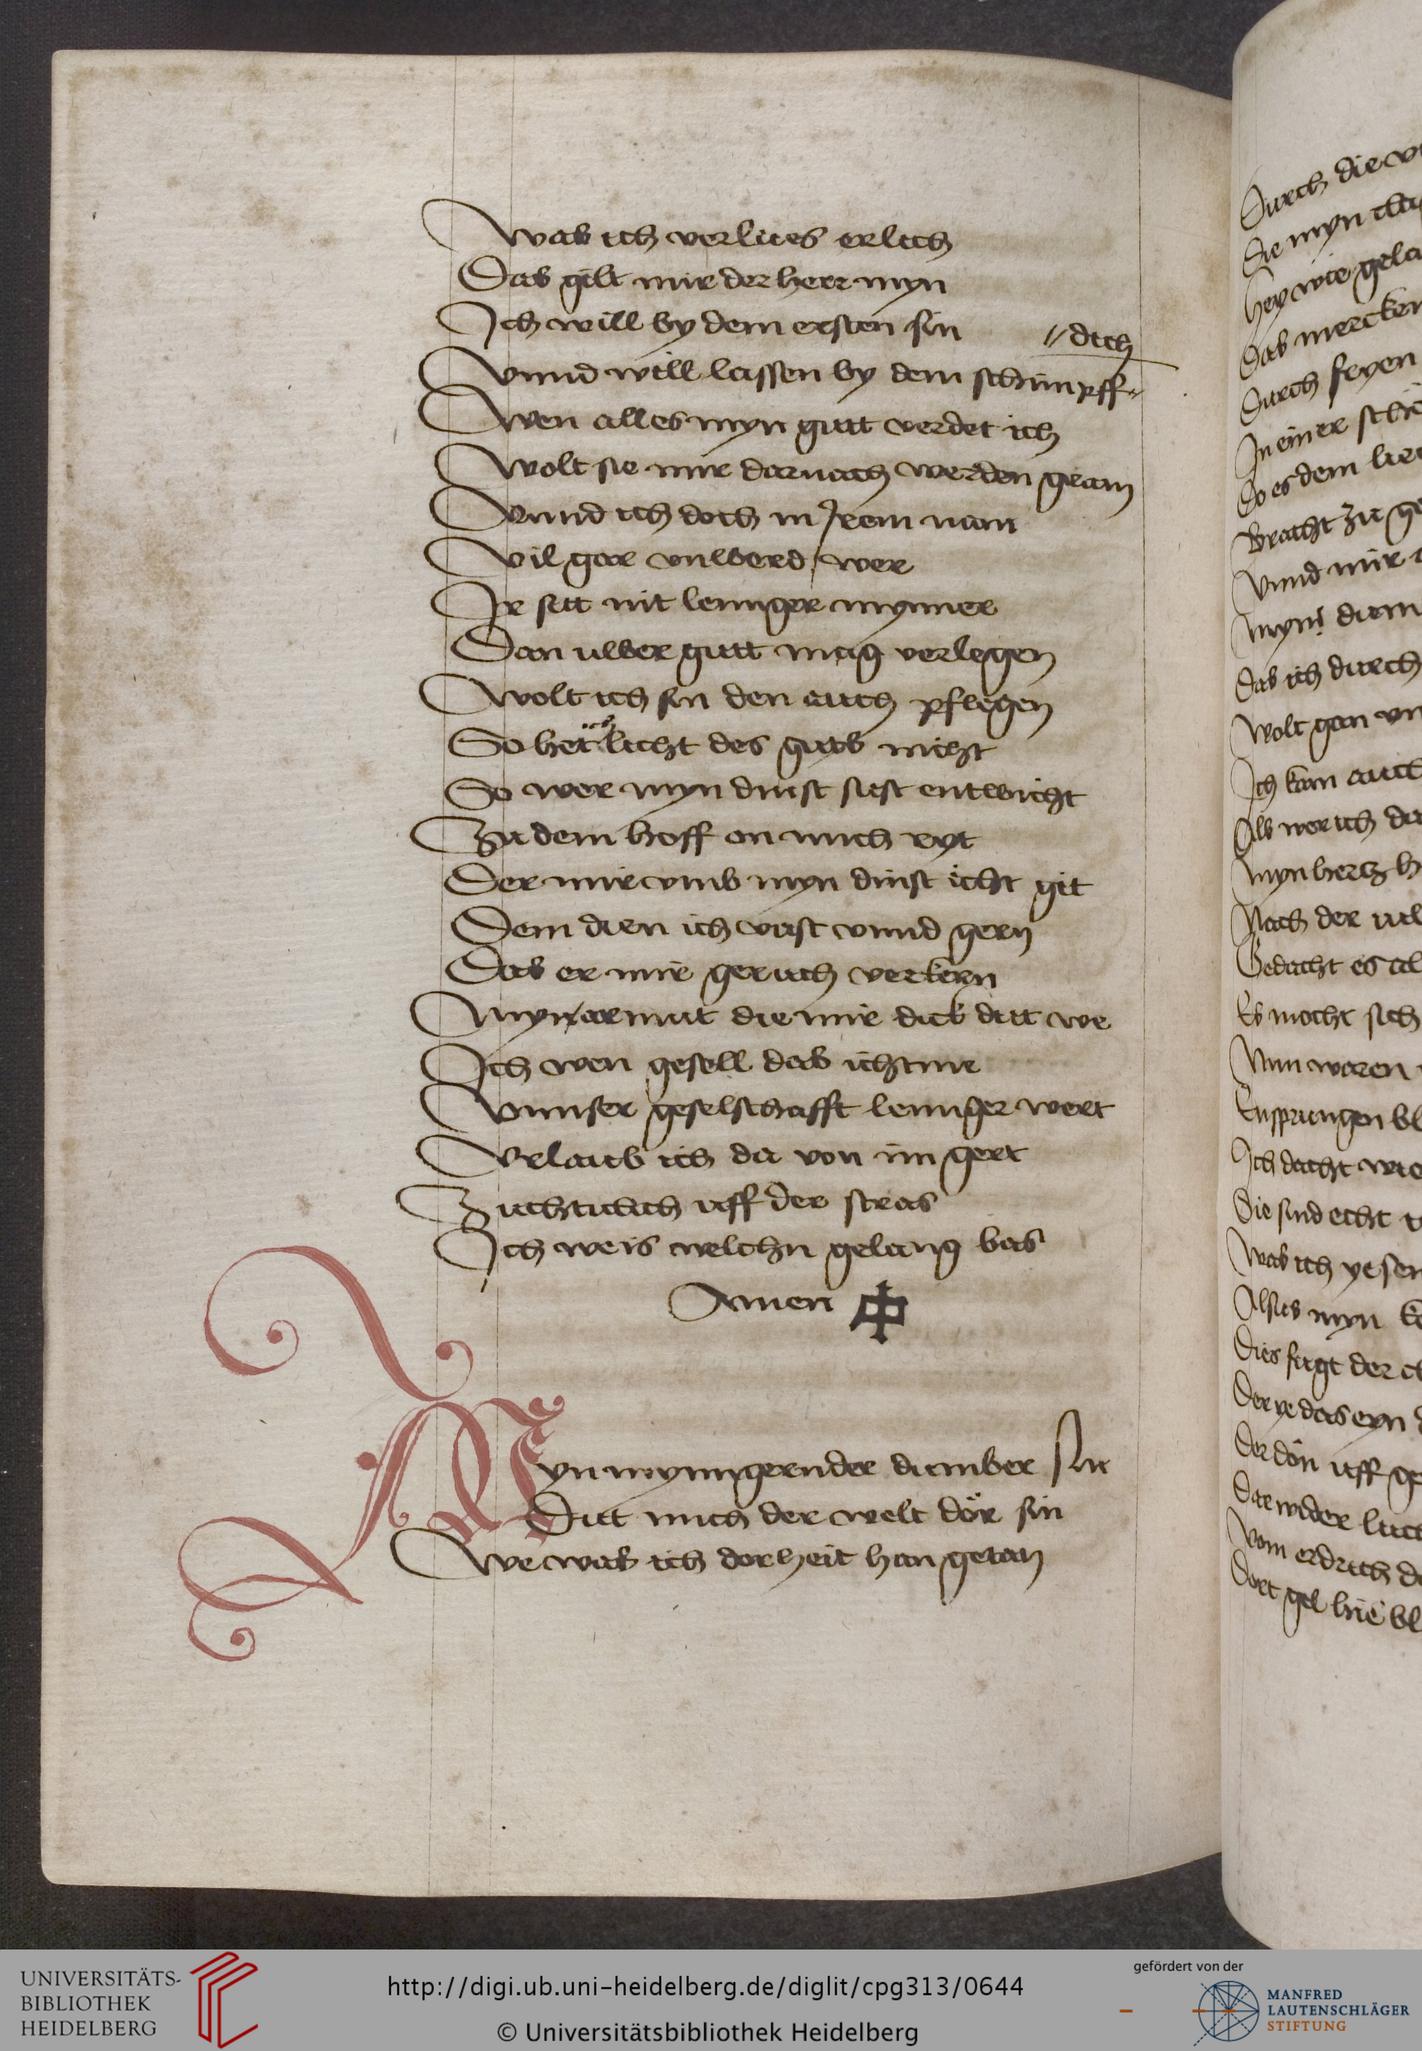 Was ich verlues erlich
Das gilt mir der herr myn
Ich will by dem ersten sin
Vnnd will lassen by dem schimpff
dich
Wen alles myn gutt verdet ich
Wolt sie mir darnach werden gram
Vnnd ich doch in jrem nam
Vil gar vnwerd wer
Ir sitt nit lennger mynner
Dan uwer gutt mag verlegen
Wolt ich sin den auch pflegen
So het licht des guts nicht
So wer myn dinst sust entwicht
Zu dem hoff on mich ryt
Der mir vmb myn dinst icht git
Dem dien ich vast vnnd gern
Das er mir geruch verkern
Myn armut die mir dick dut we
Ich wen gesell das icht me
Vnnser geselschafft lennger wert
Vrlaub ich da von im gert
Zuchticlich uff der stras
Ich weis welchn gelang bas
Amen
Myn mynngernder dumber
Dutt mich der welt dör sin
We was ich dorheit han getan
Durch die
Die myn
Hey wie
Das mercken
Durch feyen
In einer
Do es dem
Bracht zu
Vnnd mir
Myns
Das ich durch
Wolt gan
Ich kam auch
Als wer ich
Myn hertz
Nach der
Gedacht es
Es mocht sich
Nun waren
Ensprungen
Ich dacht
Die sind echt
Was ich
myn
Dies fugt der
Der ye das eyn
Der dön uff
Dar wider
Vom erdrich
Dort gel hie
UNIVERSITÄTS-
BIBLIOTHEK
HEIDELBERG
http://digi.ub.uni-heidelberg.de/diglit/cpg313/0644
© Universitätsbibliothek Heidelberg
gefördert von der
MANFRED
LAUTENSCHLÄGER
STIFTUNG